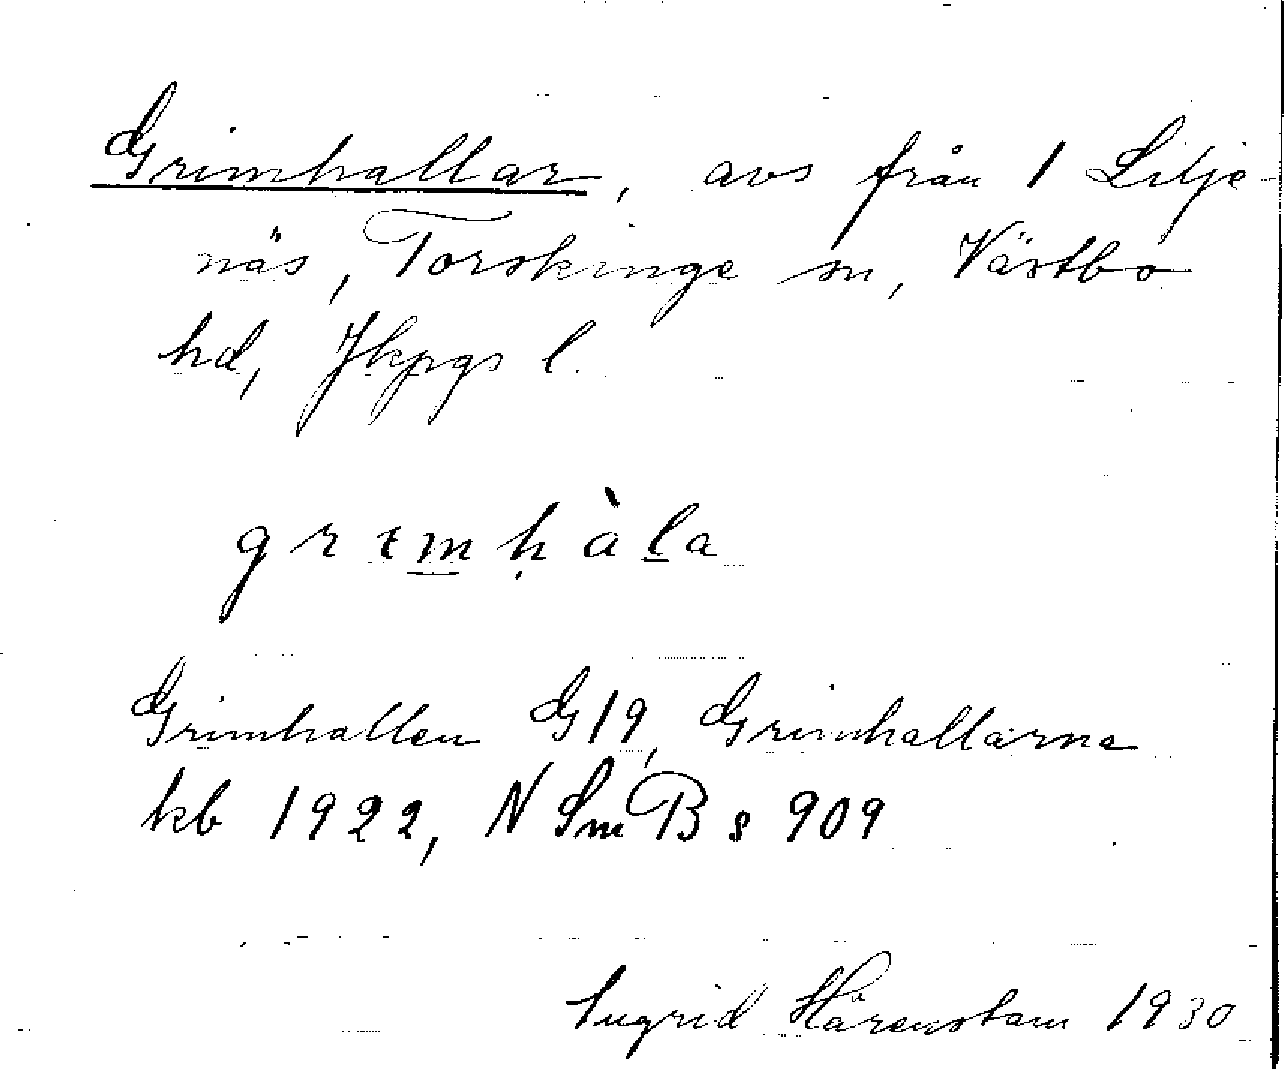 Grimhallar, avs från 1 Lilje-
näs, Torskinge sn, Västbo
hd, Jkpgs l.
grɩmhàla
Grimhallen G19, Grimhallarna
kb 1922, N Sm B s 909
Ingrid Härenstam 1930